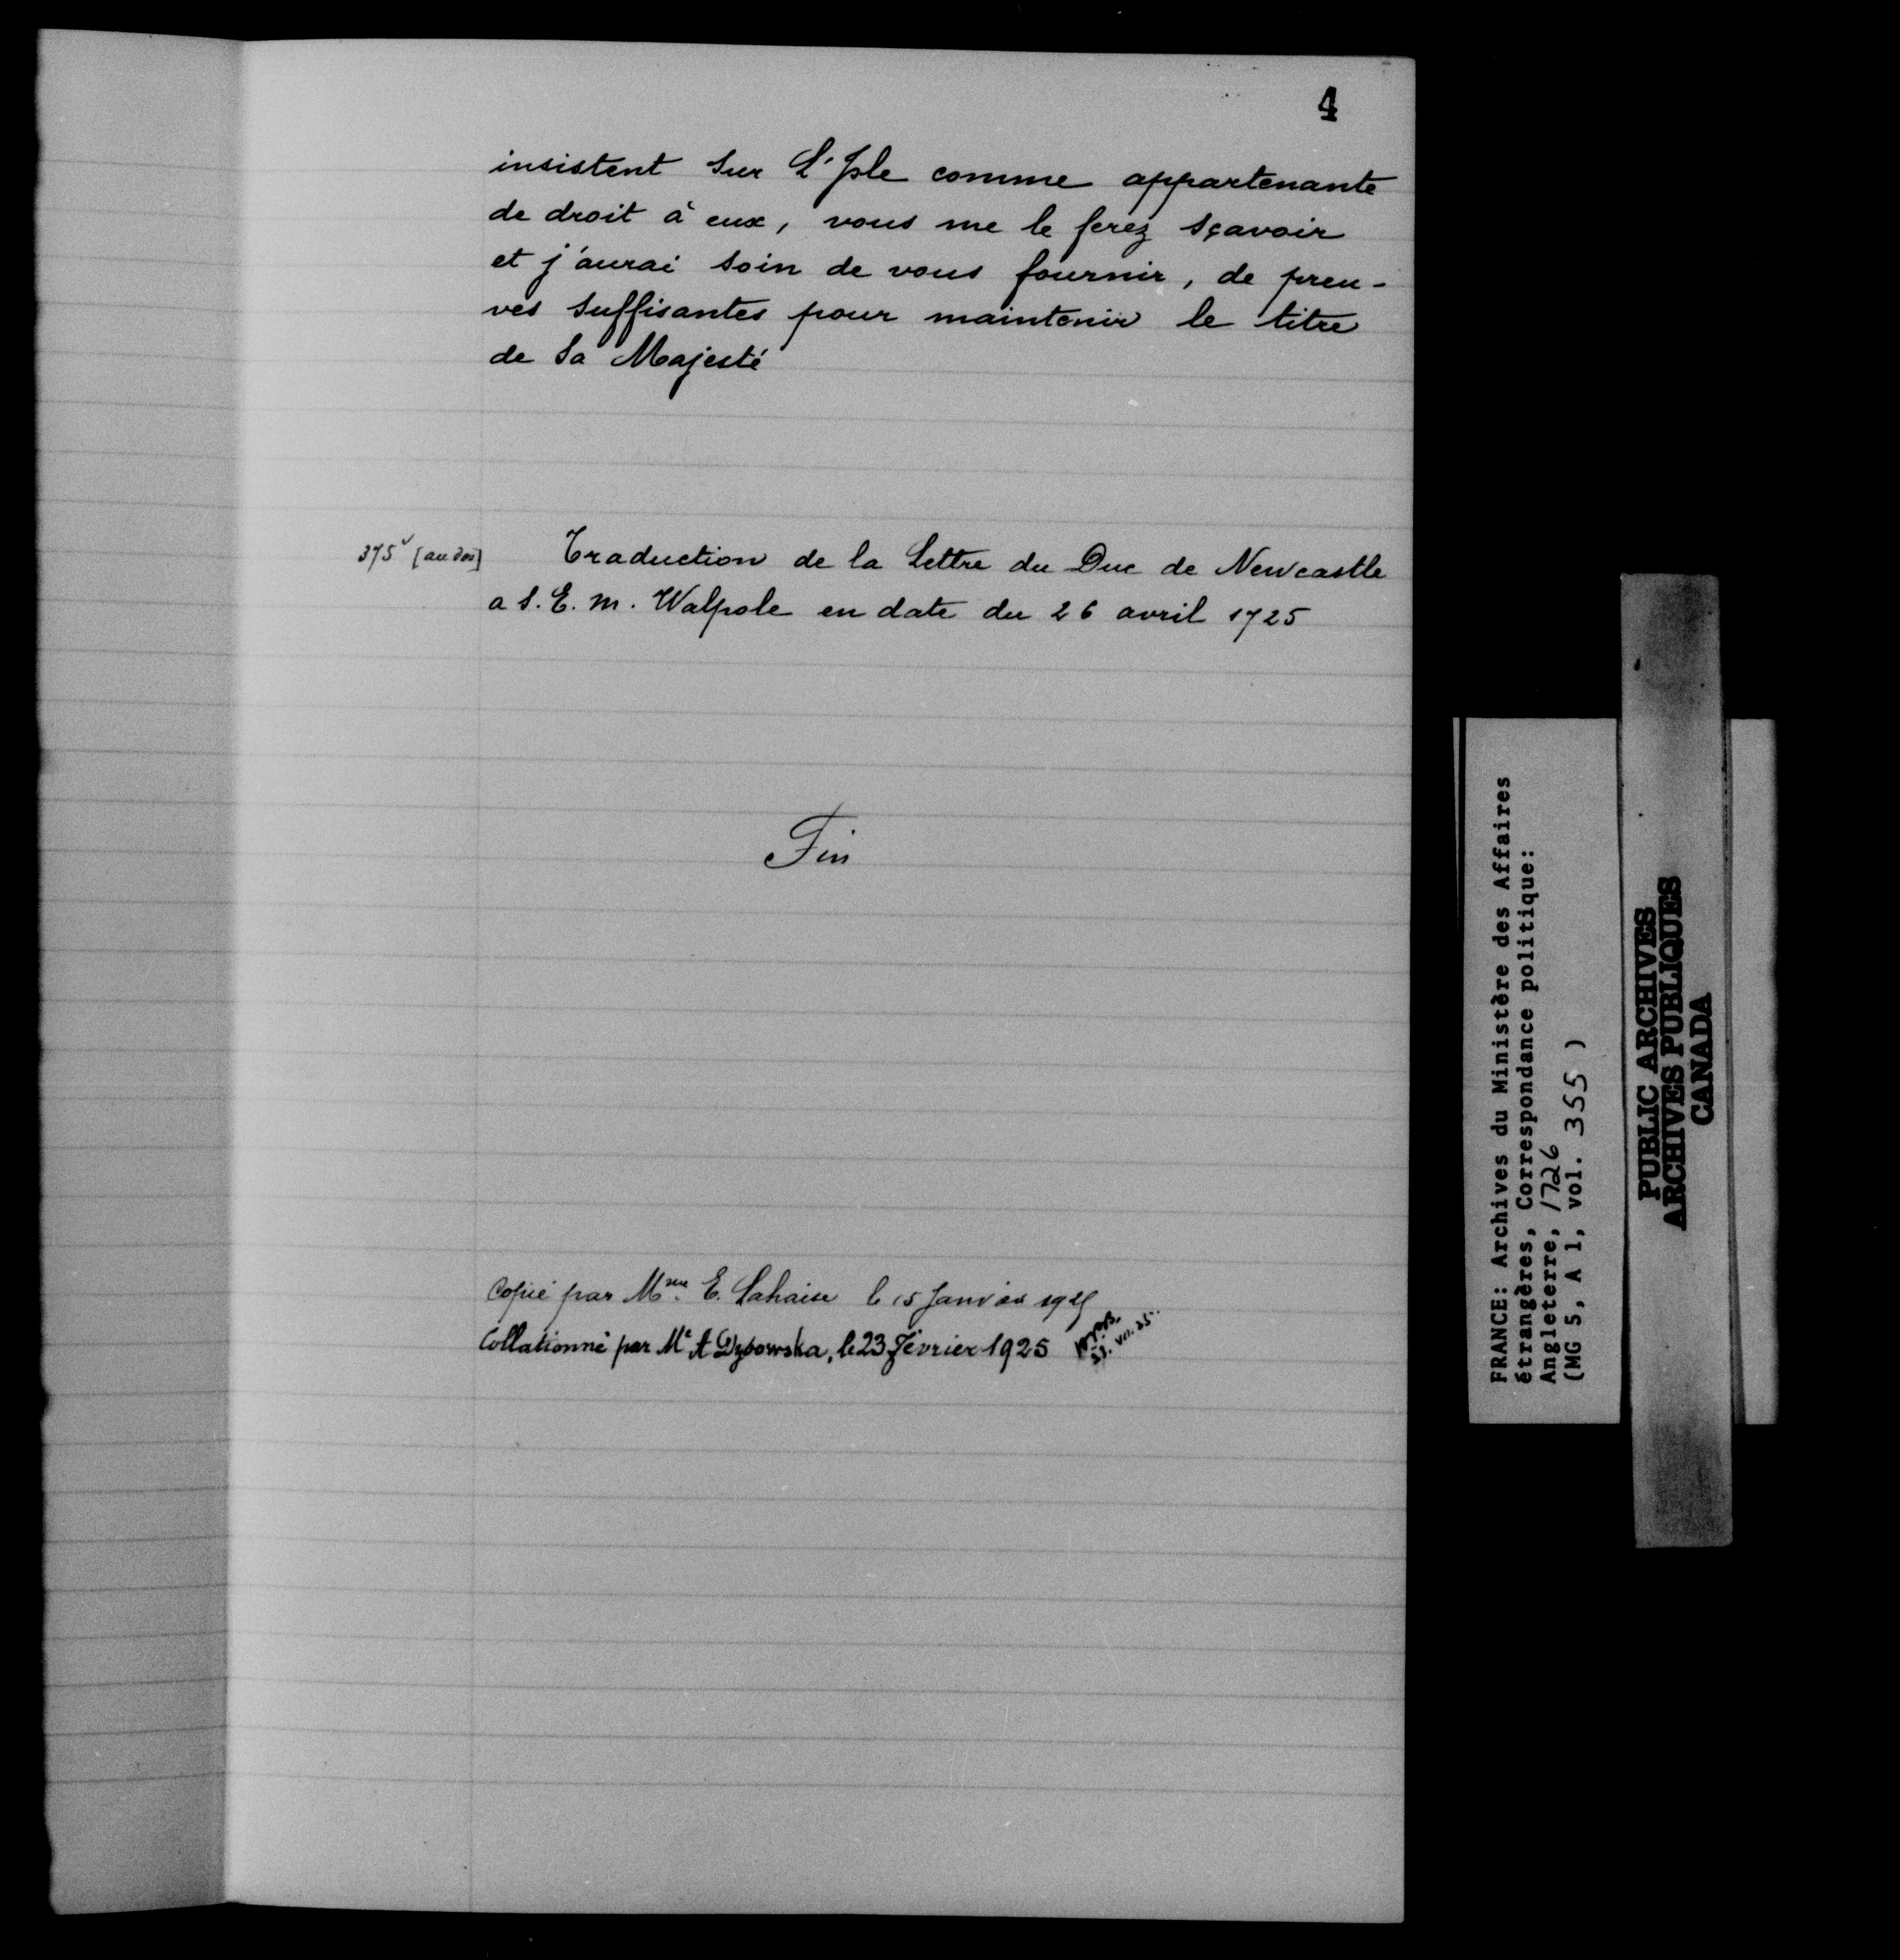 4
insistent sur L'Isle comme appartenante
de droit à eux, vous me le ferez sçavoir
et j'aurai soin de vous fournir, de preu-
ves suffisantes pour maintenir le titre
de Sa Majesté
375v [au dos] Traduction de la Lettre du Duc de Newcastle
a S. E. M. Walpole en date du 26 avril 1725
Fin
Copié par Mme E. Lahaise le 15 Janvier 1925
Collationné par Me A Dybowska, le 23 Février 1925
FRANCE: Archives du Ministère des Affaires
étrangères, Correspondance politique:
Angleterre, 1726
(MG 5, A 1, vol. 355 )
PUBLIC ARCHIVES
ARCHIVES PUBLIQUES
CANADA